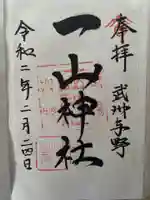 奉拝
武州与野
一山神社
令和二年二月二四日